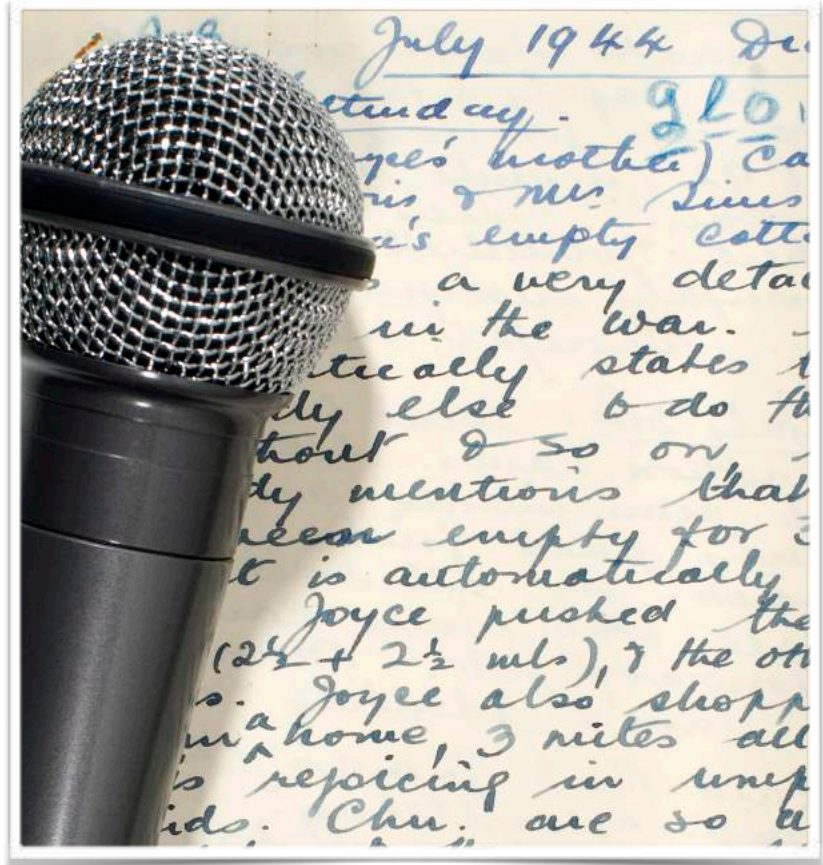 July 1944
glo
mother) Ca
& Mrs Sims
a's empty cott
a very detai
in the war.
tically states t
dy else to do th
hout & so on
dy mentions that
been empty for 3
t is automatically
Joyce pushed the
(2½ + 2½ mls), & the oth
s. Joyce also shopp
a
home, 3 miles all
s rejoicing in unep
ids. Chn. are so a